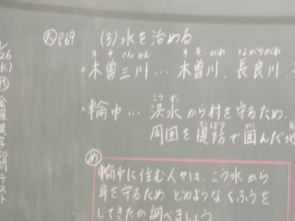 P69 (3) 水を治める
・木曽三川…木曽川、長良川、
・輪中…洪水から村を守るため、
周囲を堤防で囲んだ地
め
輪中に住む人々は、こう水から
身を守るため どのようなくふうを
してきたか調べましょう